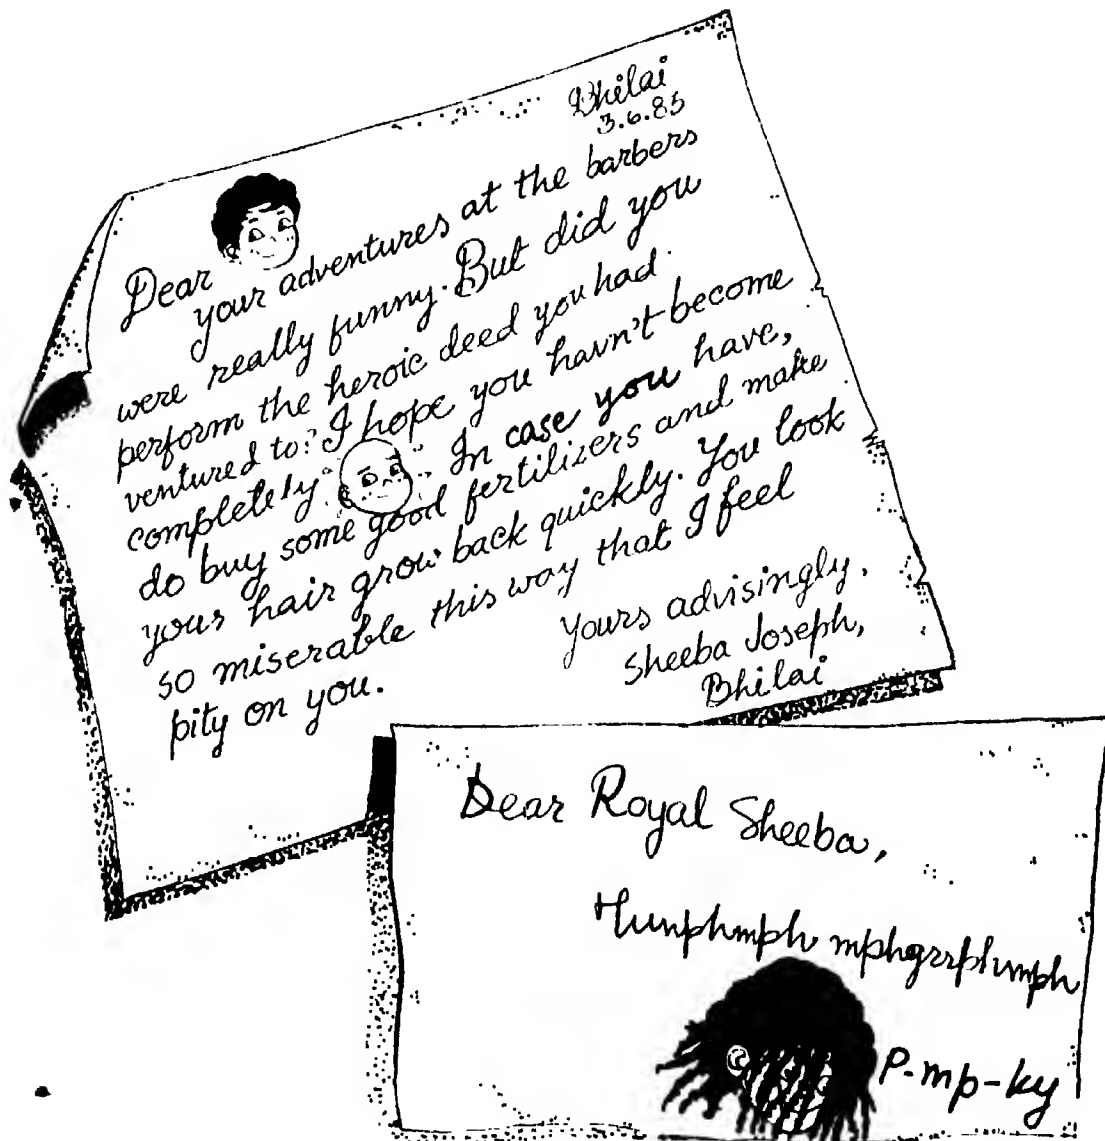 Bhilai
3.6.85
Dear
your adventures at the barbers
were really funny. But did you
perform the heroic deed you had
ventured to? I hope you havn't become
completely In case you have,
do buy some good fertilizers and make
your hair grow back quickly. You look
so miserable this way that I feel
pity on you.
Yours advisingly,
Sheeba Joseph,
Bhilai
Dear Royal Sheeba,
Humphmph mphgrrphmph
P-mp-ky